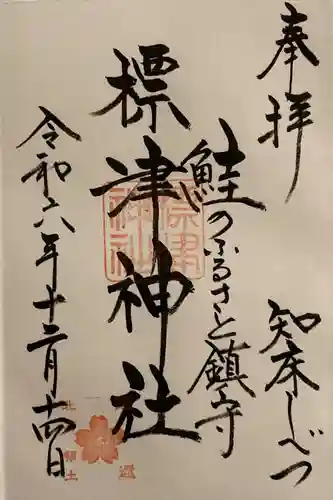 奉拝
知床しべつ
鮭のふるさと鎮守
標津神社
令和六年十二月十四日
標津神社